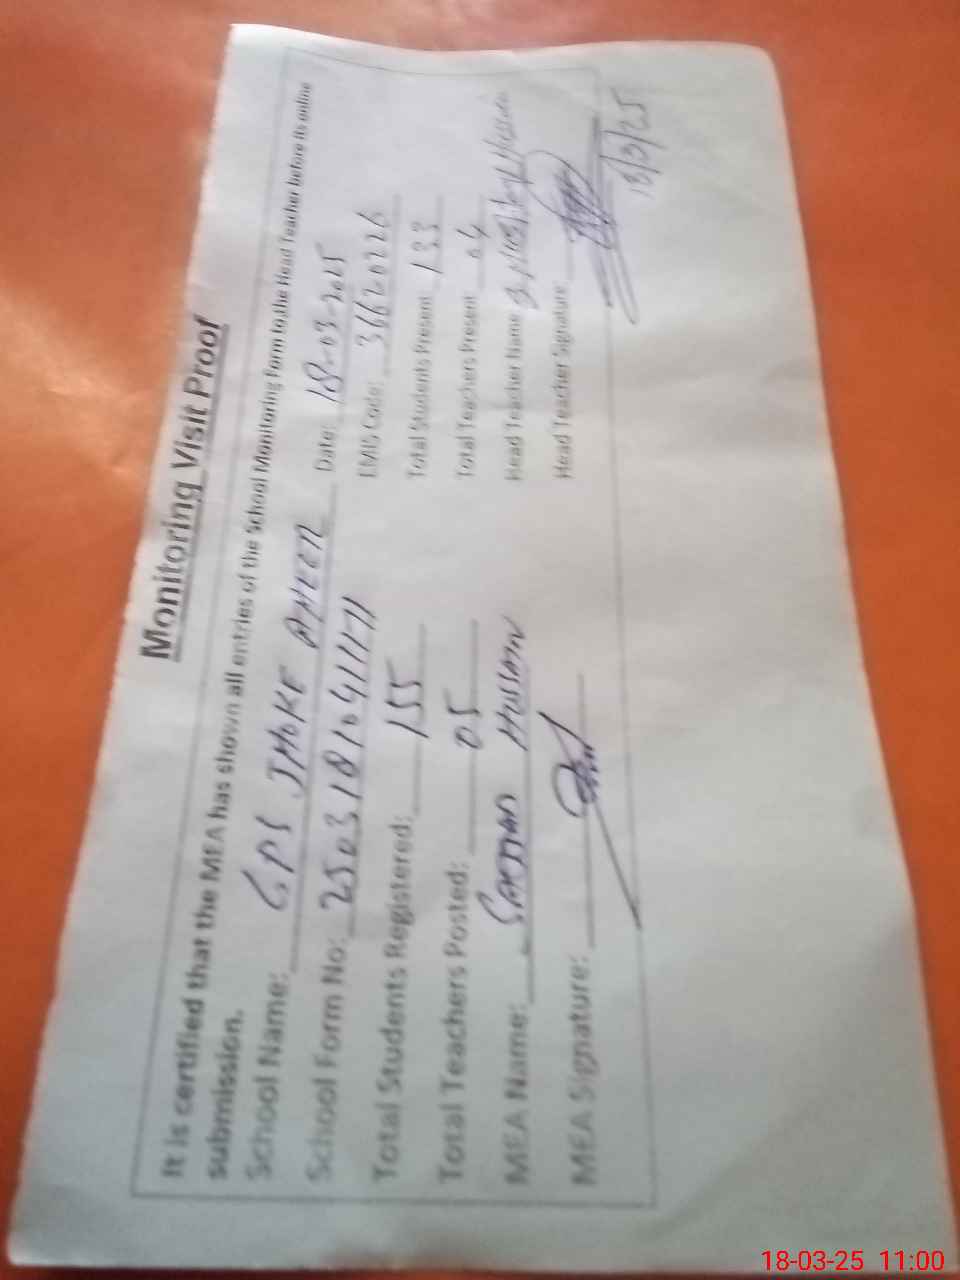 Monitoring Visit Proof
It is certified that the MEA has shown all entries of the School Monitoring Form to the Head Teacher before its online
submission.
School Name: GPS JHOKE AMEEN Date: 18-03-2025
School Form No: 2503181041171 EMIS Code: 36620226
Total Students Registered: 155 Total Students Present 133
Total Teachers Posted: 05 Total Teachers Present 04
MEA Name: Hussain Head Teacher Name Hussain
MEA Signature: Head Teacher Signature:
18/3/25
18-03-25 11:00